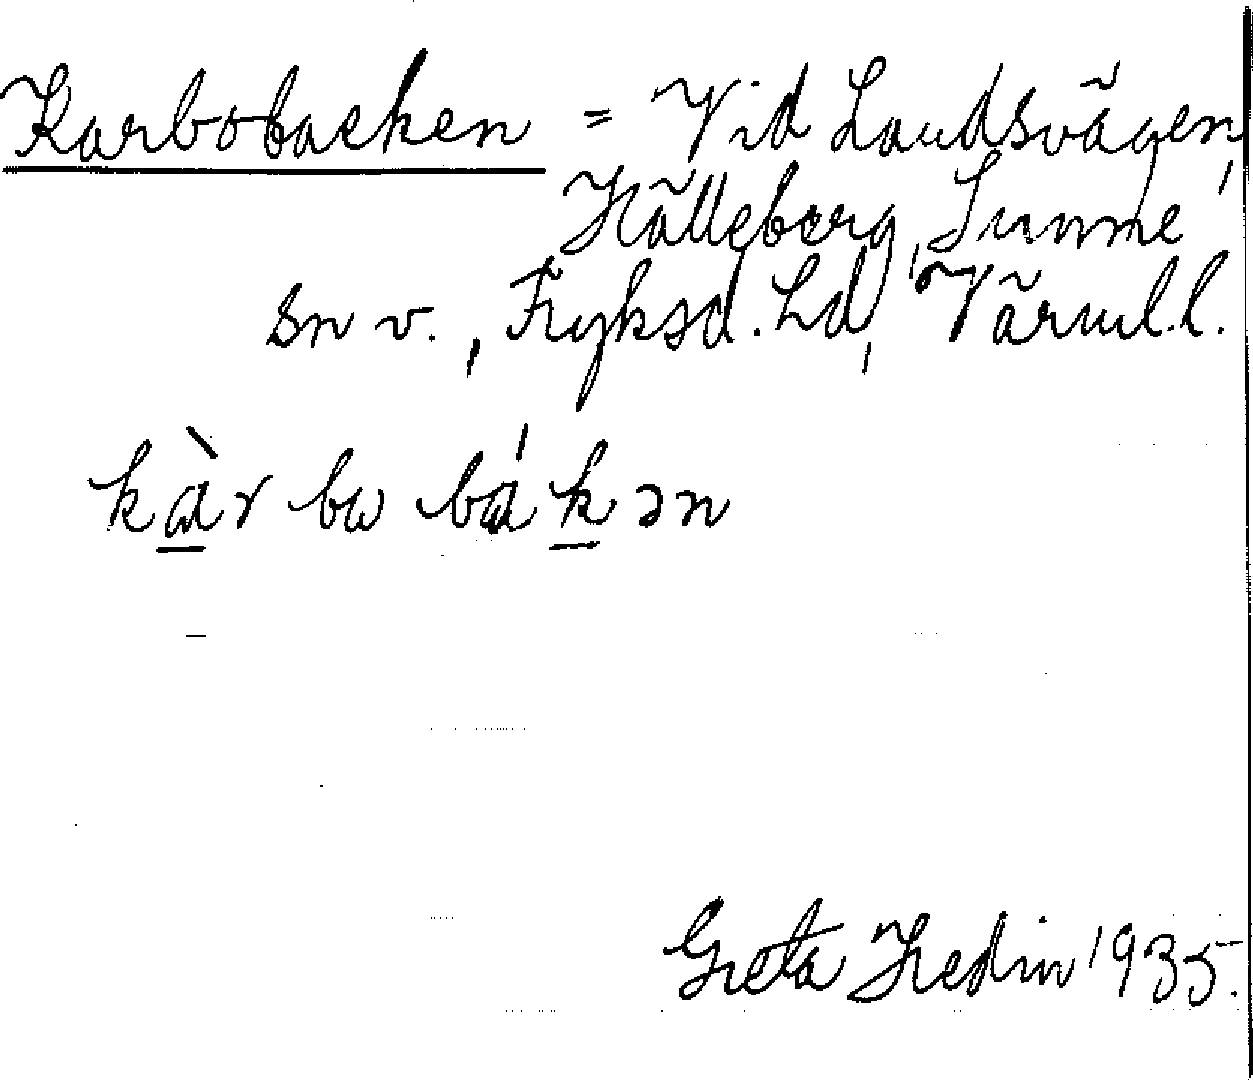 Karbobacken = Vid Landsvägen,
Hälleberg, Sunne
sn v., Fryksd. hd, Värml. l.
kàr bω bákən
Greta Hedin 1935.